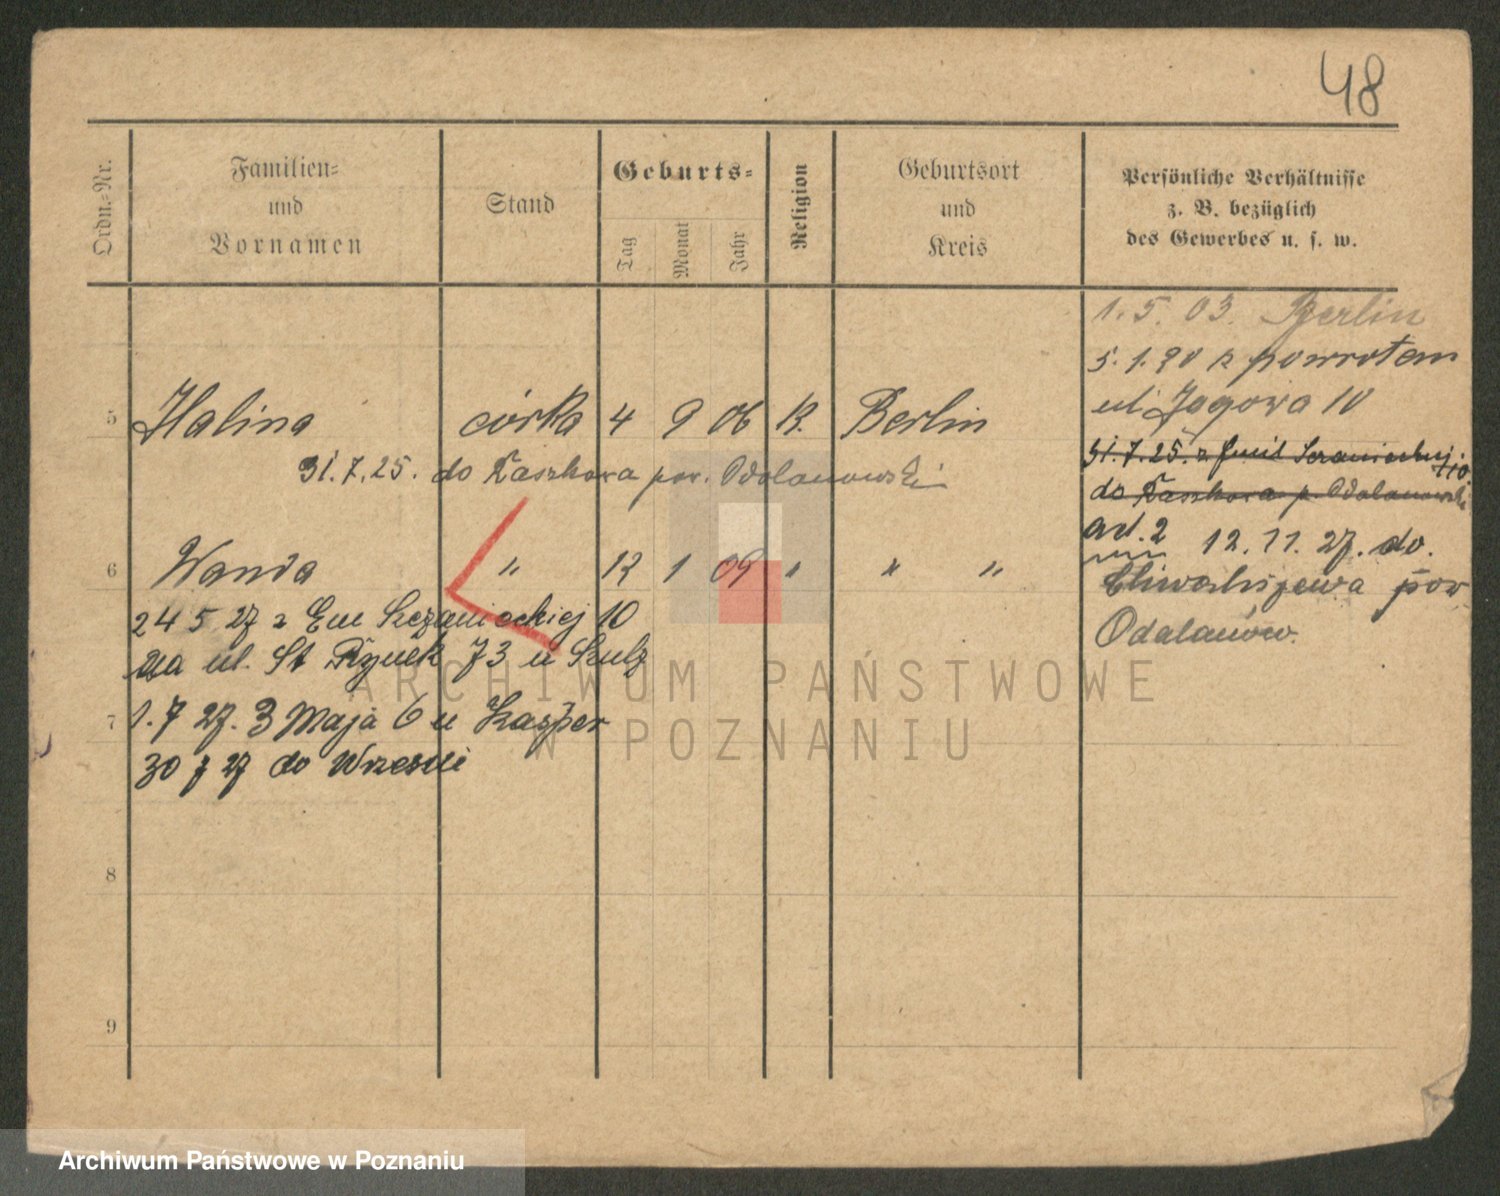 48
Ordn.-Nr.
Familien-
und
Vornamen
Stand
Geburts-
Tag
Monat
Jahr
Religion
Geburtsort
und
Kreis
Persönliche Verhältnisse
z. B. bezüglich
des Gewerbes u. s. w.
1. 5. 03. Berlin
5. 1. 20 z powrotem
ul Jagowa 10
5 Halina córka 4 9 06 K. Berlin
31.7.25. do Raszkowa pow. Odolanowski
31.7.25. z
do Raszkowa p. Odolanowski
ad. 2 12. 11. 27. do.
6 Wanda " 12 1 09 " " "
Chwaliszewa pow
Odalanów.
24 5 27 z Em Sczanieckiej 10
na ul. St Rynek 73 u Szulz
7 1. 7 27. 3 Maja 6 u Kasper
30 7 27 do Wrześni
8
9
ARCHIWUM PAŃSTWOWE
W POZNANIU
Archiwum Państwowe w Poznaniu